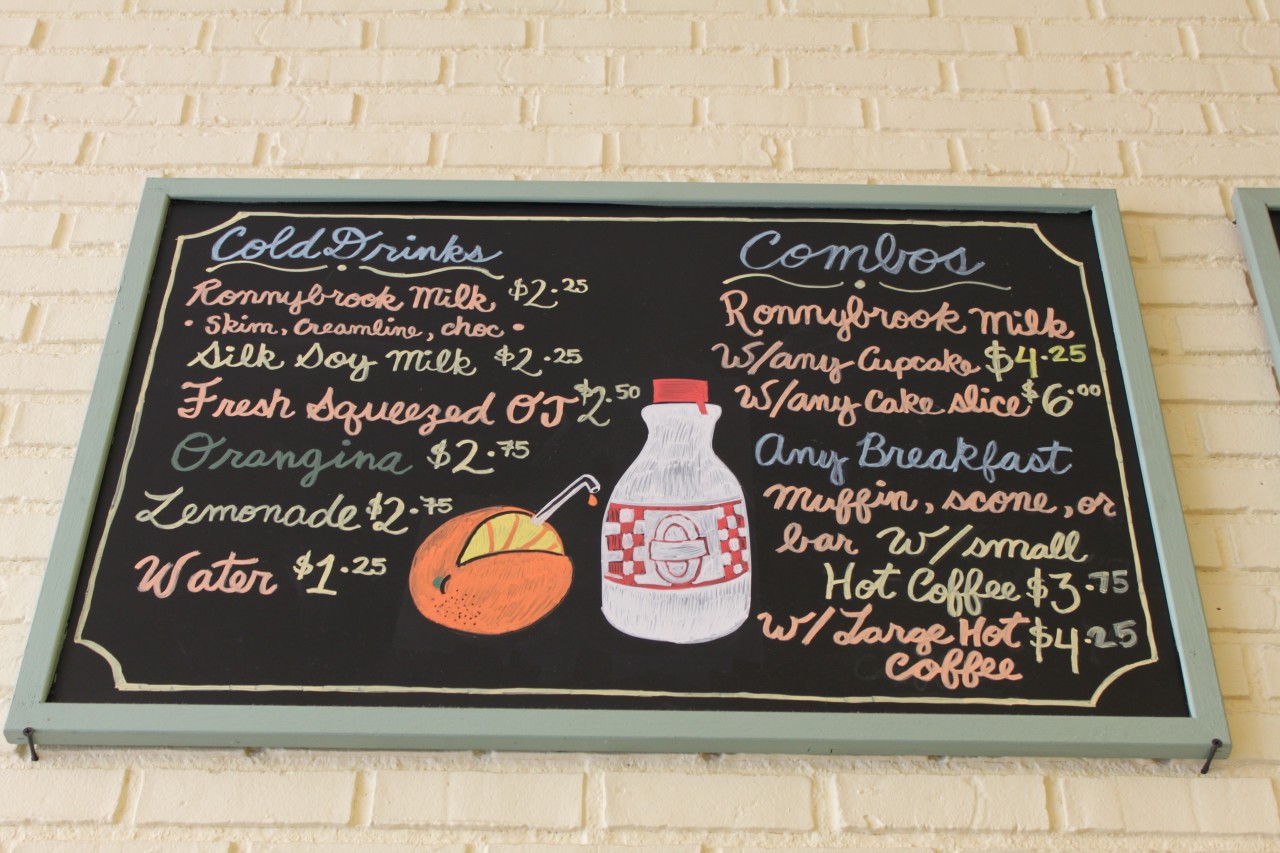 Cold Drinks
Ronnybrook Milk $2.25
• Skim, Creamline, choc •
Silk Soy Milk $2.25
Fresh Squeezed OJ $2.50
Orangina $2.75
Lemonade $2.75
Water $1.25
Combos
Ronnybrook Milk
W/any Cupcake $4.25
W/any Cake slice $6.00
Any Breakfast
muffin, scone, or
bar W/small
Hot Coffee $3.75
W/Large Hot $4.25
Coffee